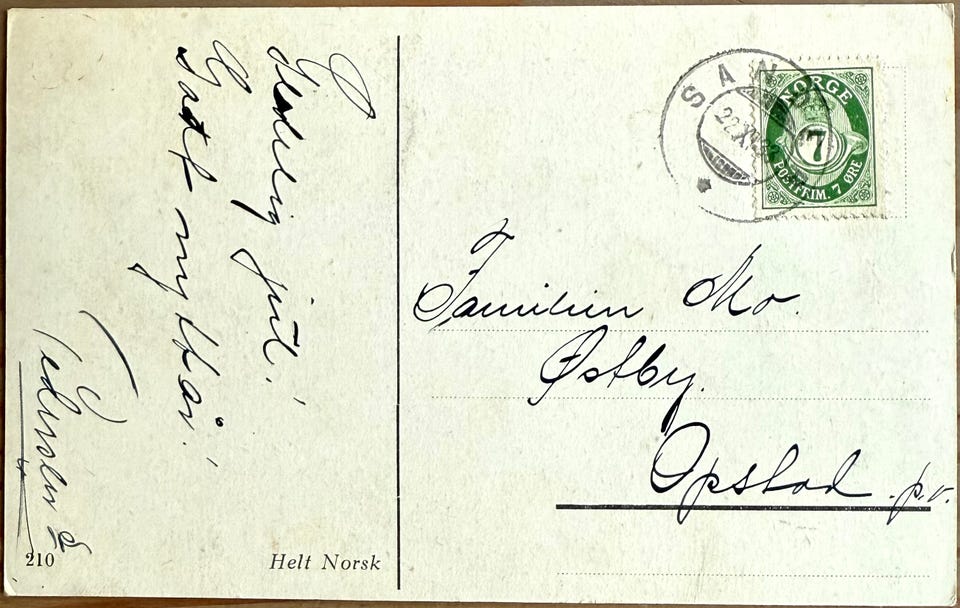 Gledelig jul!
Godt nyttår!
210
Helt Norsk
SAN
NORGE
7
POSTFRIM. 7 ØRE
Familien Mo.
Østby.
Opstad p.v.